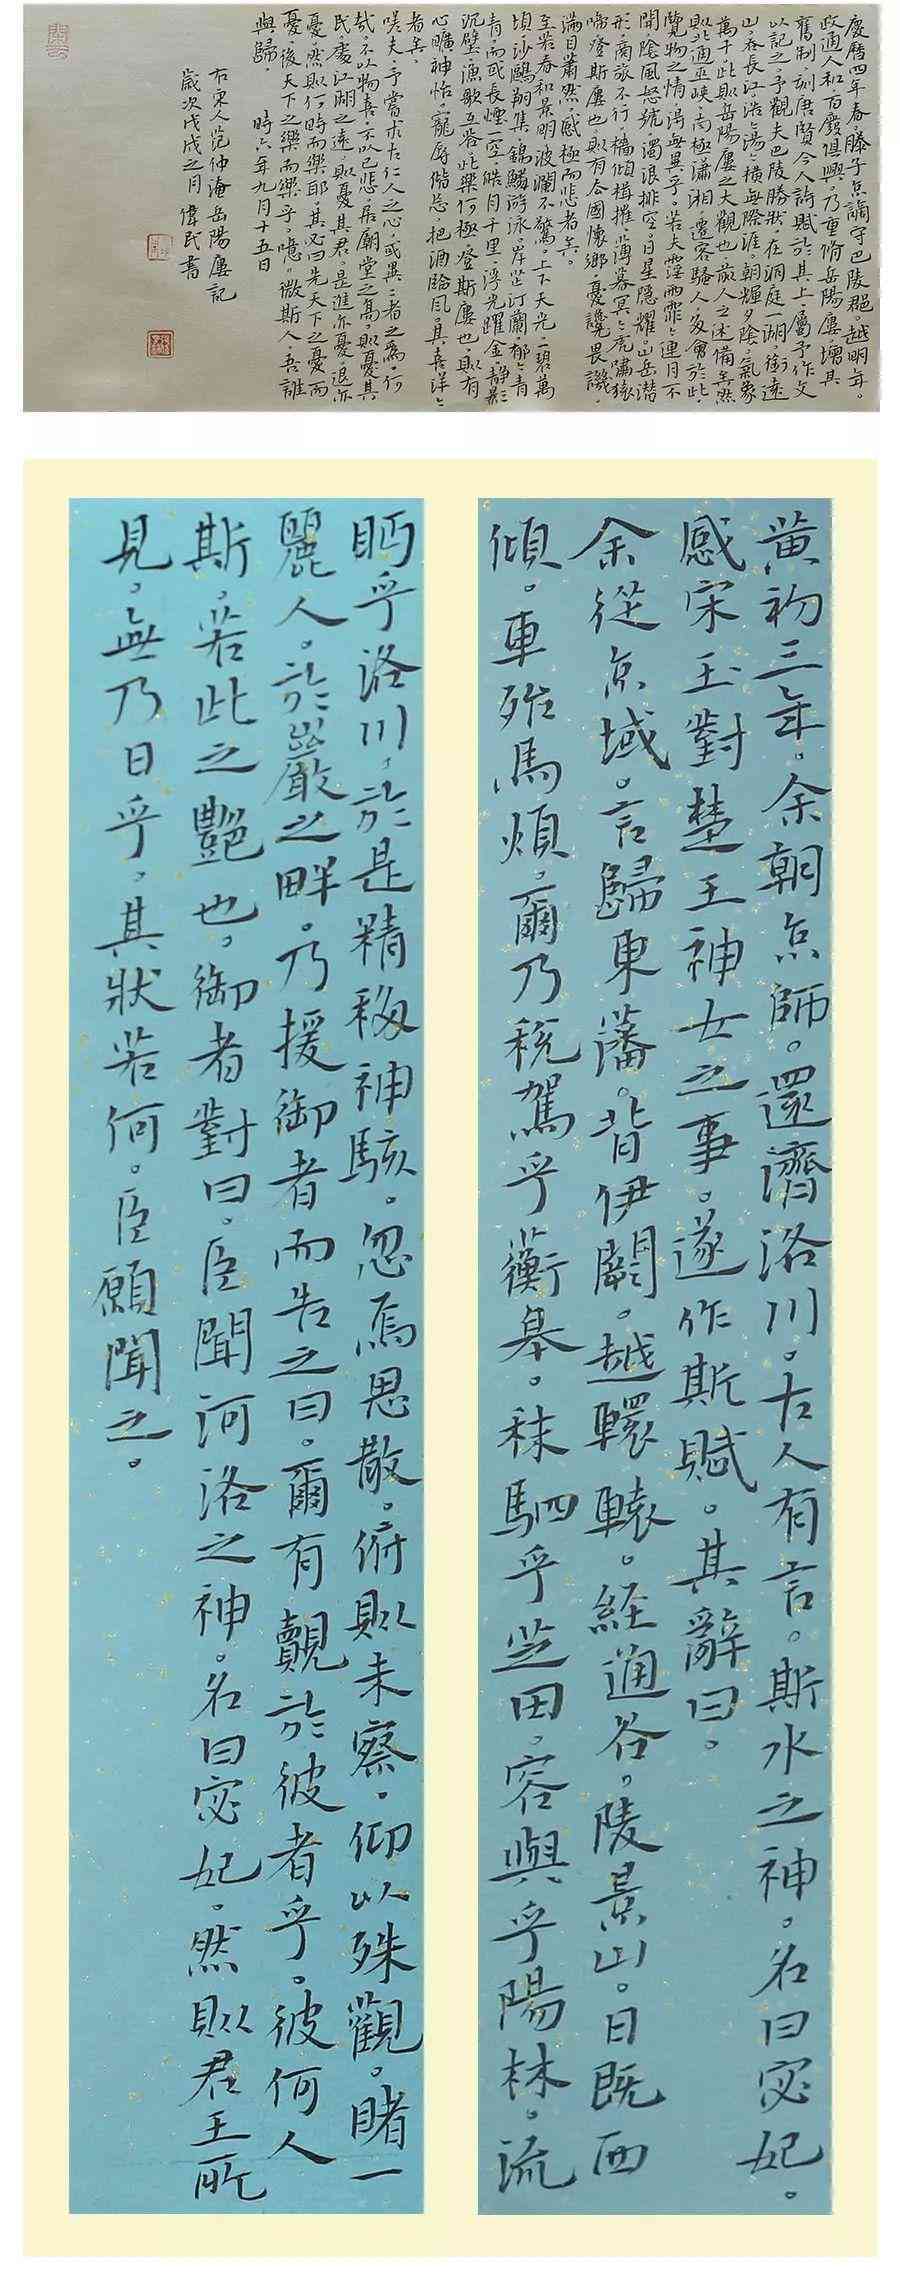 慶曆四年春。滕子京謫守巴陵郡。越明年。
政通人和。百廢俱興。乃重脩岳陽樓。增其
舊制。刻唐賢今人詩賦於其上。屬予作文
以記之。予觀夫巴陵勝狀。在洞庭一湖。銜遠
山。吞長江。浩々湯々。橫無際涯。朝暉夕陰。氣象
萬千。此則岳陽樓之大觀也。前人之述備矣。然
則北通巫峽。南極瀟湘。遷客騷人。多會於此。
覽物之情。得無異乎。若夫霪雨霏々。連月不
開。陰風怒號。濁浪排空。日星隱耀。山岳潛
形。商旅不行。檣傾楫摧。薄暮冥々。虎嘯猿
啼。登斯樓也。則有去國懷鄉。憂讒畏譏。
滿目蕭然。感極而悲者矣。
至若春和景明。波瀾不驚。上下天光。一碧萬
頃。沙鷗翔集。錦鱗游泳。岸芷汀蘭。郁々青
青。而或長煙一空。皓月千里。浮光躍金。靜影
沉璧。漁歌互答。此樂何極。登斯樓也。則有
心曠神怡。寵辱偕忘。把酒臨風。其喜洋々
者矣。
嗟夫。予嘗求古仁人之心。或異二者之為。何
哉。不以物喜。不以己悲。居廟堂之高。則憂其
民。處江湖之遠。則憂其君。是進亦憂。退亦
憂。然則何時而樂耶。其必曰先天下之憂而
憂。後天下之樂而樂乎。噫。微斯人。吾誰
與歸。 時六年九月十五日
右宋人范仲淹岳陽樓記
歲次戊戌之月偉民書
黃初三年。余朝京師。還濟洛川。古人有言。斯水之神。名曰宓妃。
感宋玉對楚王神女之事。遂作斯賦。其辭曰。
余從京域。言歸東藩。背伊闕。越轘轅。經通谷。陵景山。日既西
傾。車殆馬煩。爾乃稅駕乎蘅皋。秣駟乎芝田。容與乎陽林。流
眄乎洛川。於是精移神駭。忽焉思散。俯則未察。仰以殊觀。睹一
麗人。於巖之畔。乃援御者而告之曰。爾有覿於彼者乎。彼何人
斯。若此之艷也。御者對曰。臣聞河洛之神。名曰宓妃。然則君王所
見。無乃日乎。其狀若何。臣願聞之。